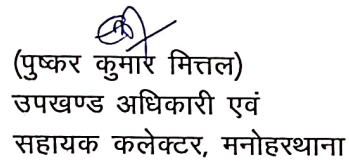 (पुष्कर कुमार मित्तल)
उपखण्ड अधिकारी एवं
सहायक कलेक्टर, मनोहरथाना